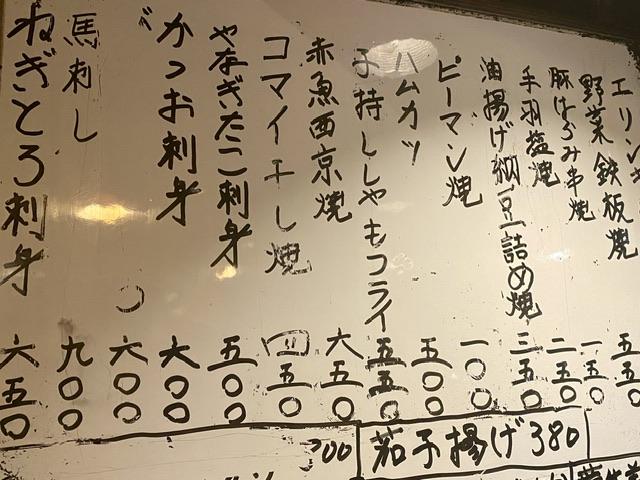 エリンギ
野菜鉄板焼 五五〇
豚はらみ串焼 一五〇
手羽塩焼 二五〇
油揚げ納豆詰め焼 三五〇
ピーマン焼 一〇〇
ハムカツ 五〇〇
子持ししゃもフライ 五五〇
赤魚西京焼 六五〇
コマイ干し焼 四五〇
やなぎたこ刺身 五〇〇
かつお刺身 六〇〇
六〇〇
馬刺し 九〇〇
ねぎとろ刺身 六五〇
茄子揚げ 380